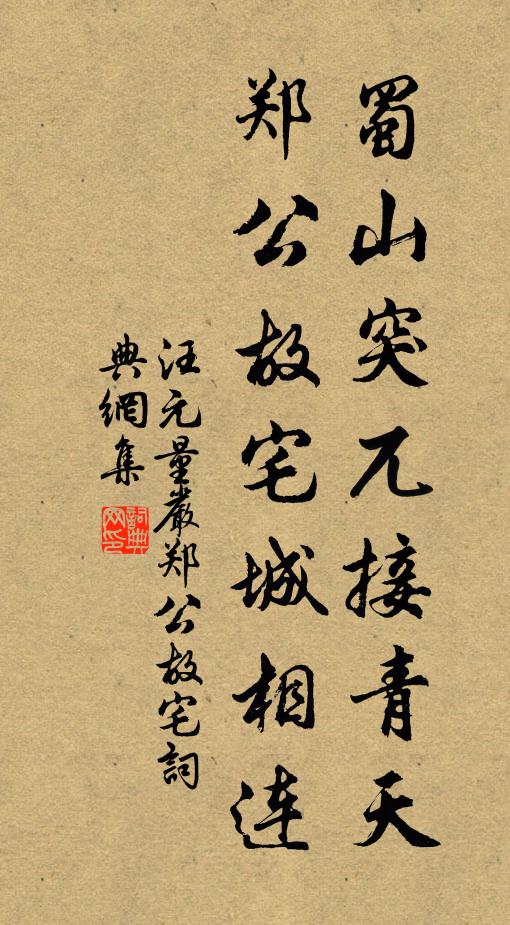 蜀山突兀接青天
郑公故宅城相连
汪元量嚴郑公故宅詞
典網集
詞典
网印